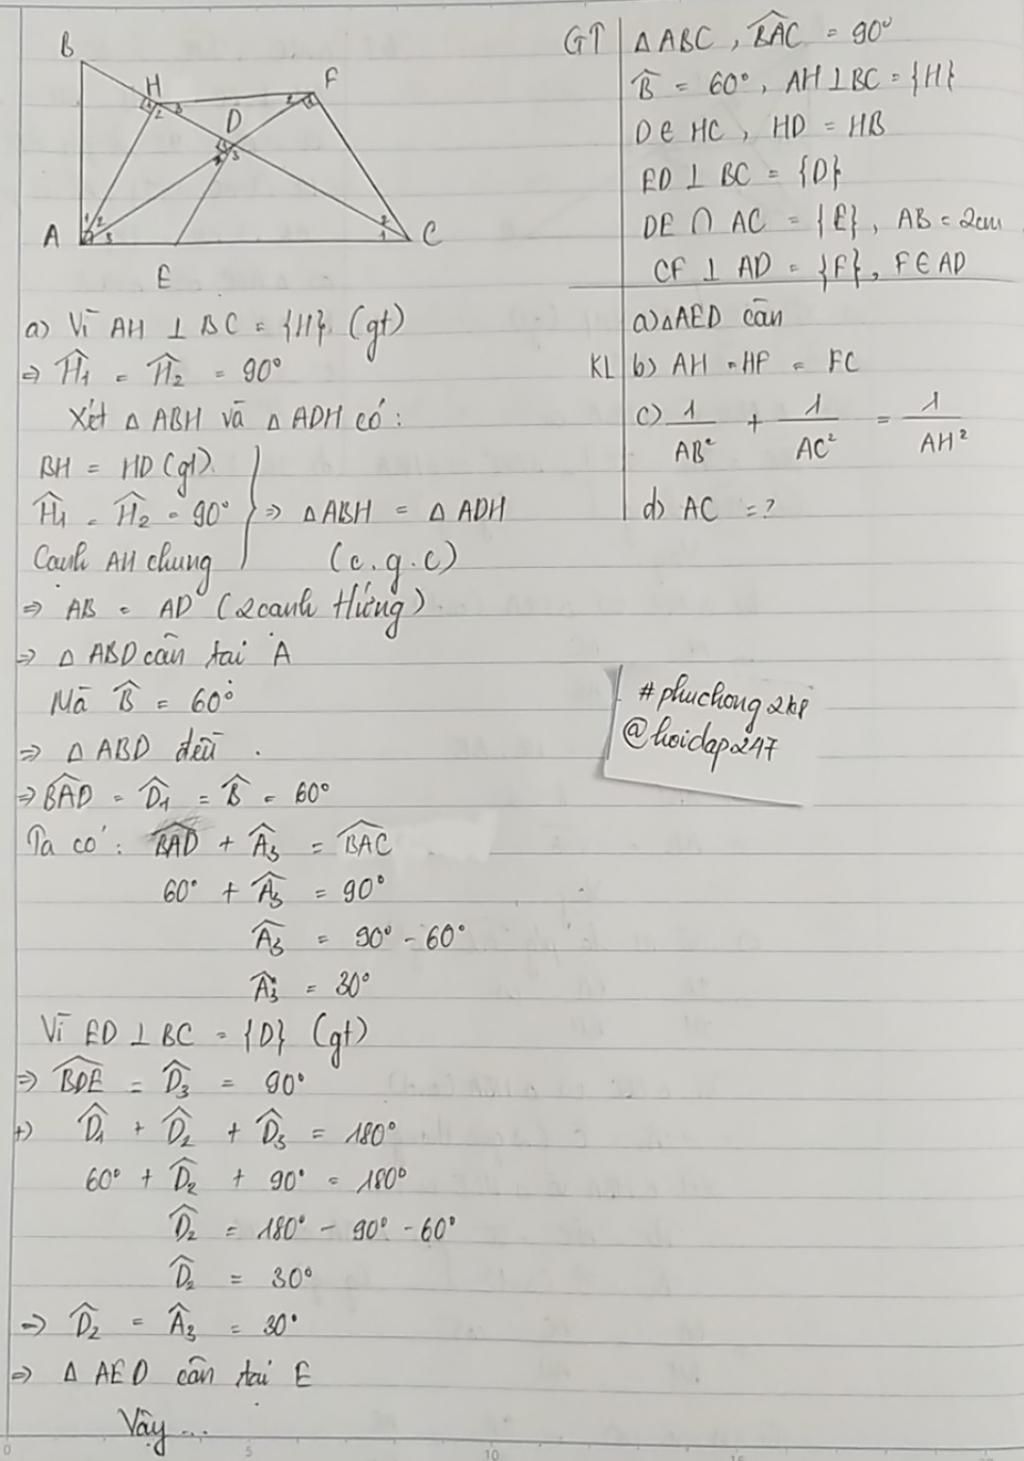 B
H
F
D
A
E
C
GT
△ABC, $\widehat{BAC}$ = 90°
$\widehat{B}$ = 60°, AH ⊥ BC = {H}
D ∈ HC, HD = HB
ED ⊥ BC = {D}
DE ∩ AC = {E}, AB = 2cm
CF ⊥ AD = {F}, F ∈ AD
KL
a) △AED cân
b) AH = HF = FC
c) $\frac{1}{AB^2} + \frac{1}{AC^2} = \frac{1}{AH^2}$
d) AC = ?
a) Vì AH ⊥ BC = {H} (gt)
⇒ $\widehat{H_1}$ = $\widehat{H_2}$ = 90°
Xét △ABH và △ADH có:
BH = HD (gt)
$\widehat{H_1}$ = $\widehat{H_2}$ = 90° ⇒ △ABH = △ADH
Cạnh AH chung (c.g.c)
⇒ AB = AD (2 cạnh tứng)
⇒ △ABD cân tại A
Mà $\widehat{B}$ = 60°
⇒ △ABD đều.
⇒ $\widehat{BAD}$ = $\widehat{D_1}$ = $\widehat{B}$ = 60°
Ta có: $\widehat{BAD}$ + $\widehat{A_3}$ = $\widehat{BAC}$
60° + $\widehat{A_3}$ = 90°
$\widehat{A_3}$ = 90° - 60°
$\widehat{A_3}$ = 30°
Vì ED ⊥ BC = {D} (gt)
⇒ $\widehat{BDE}$ = $\widehat{D_3}$ = 90°
+) $\widehat{D_1}$ + $\widehat{D_2}$ + $\widehat{D_3}$ = 180°
60° + $\widehat{D_2}$ + 90° = 180°
$\widehat{D_2}$ = 180° - 90° - 60°
$\widehat{D_2}$ = 30°
⇒ $\widehat{D_2}$ = $\widehat{A_3}$ = 30°
⇒ △AED cân tại E
Vậy ...
#phuchong2k8
@hoidap247
0 5 10